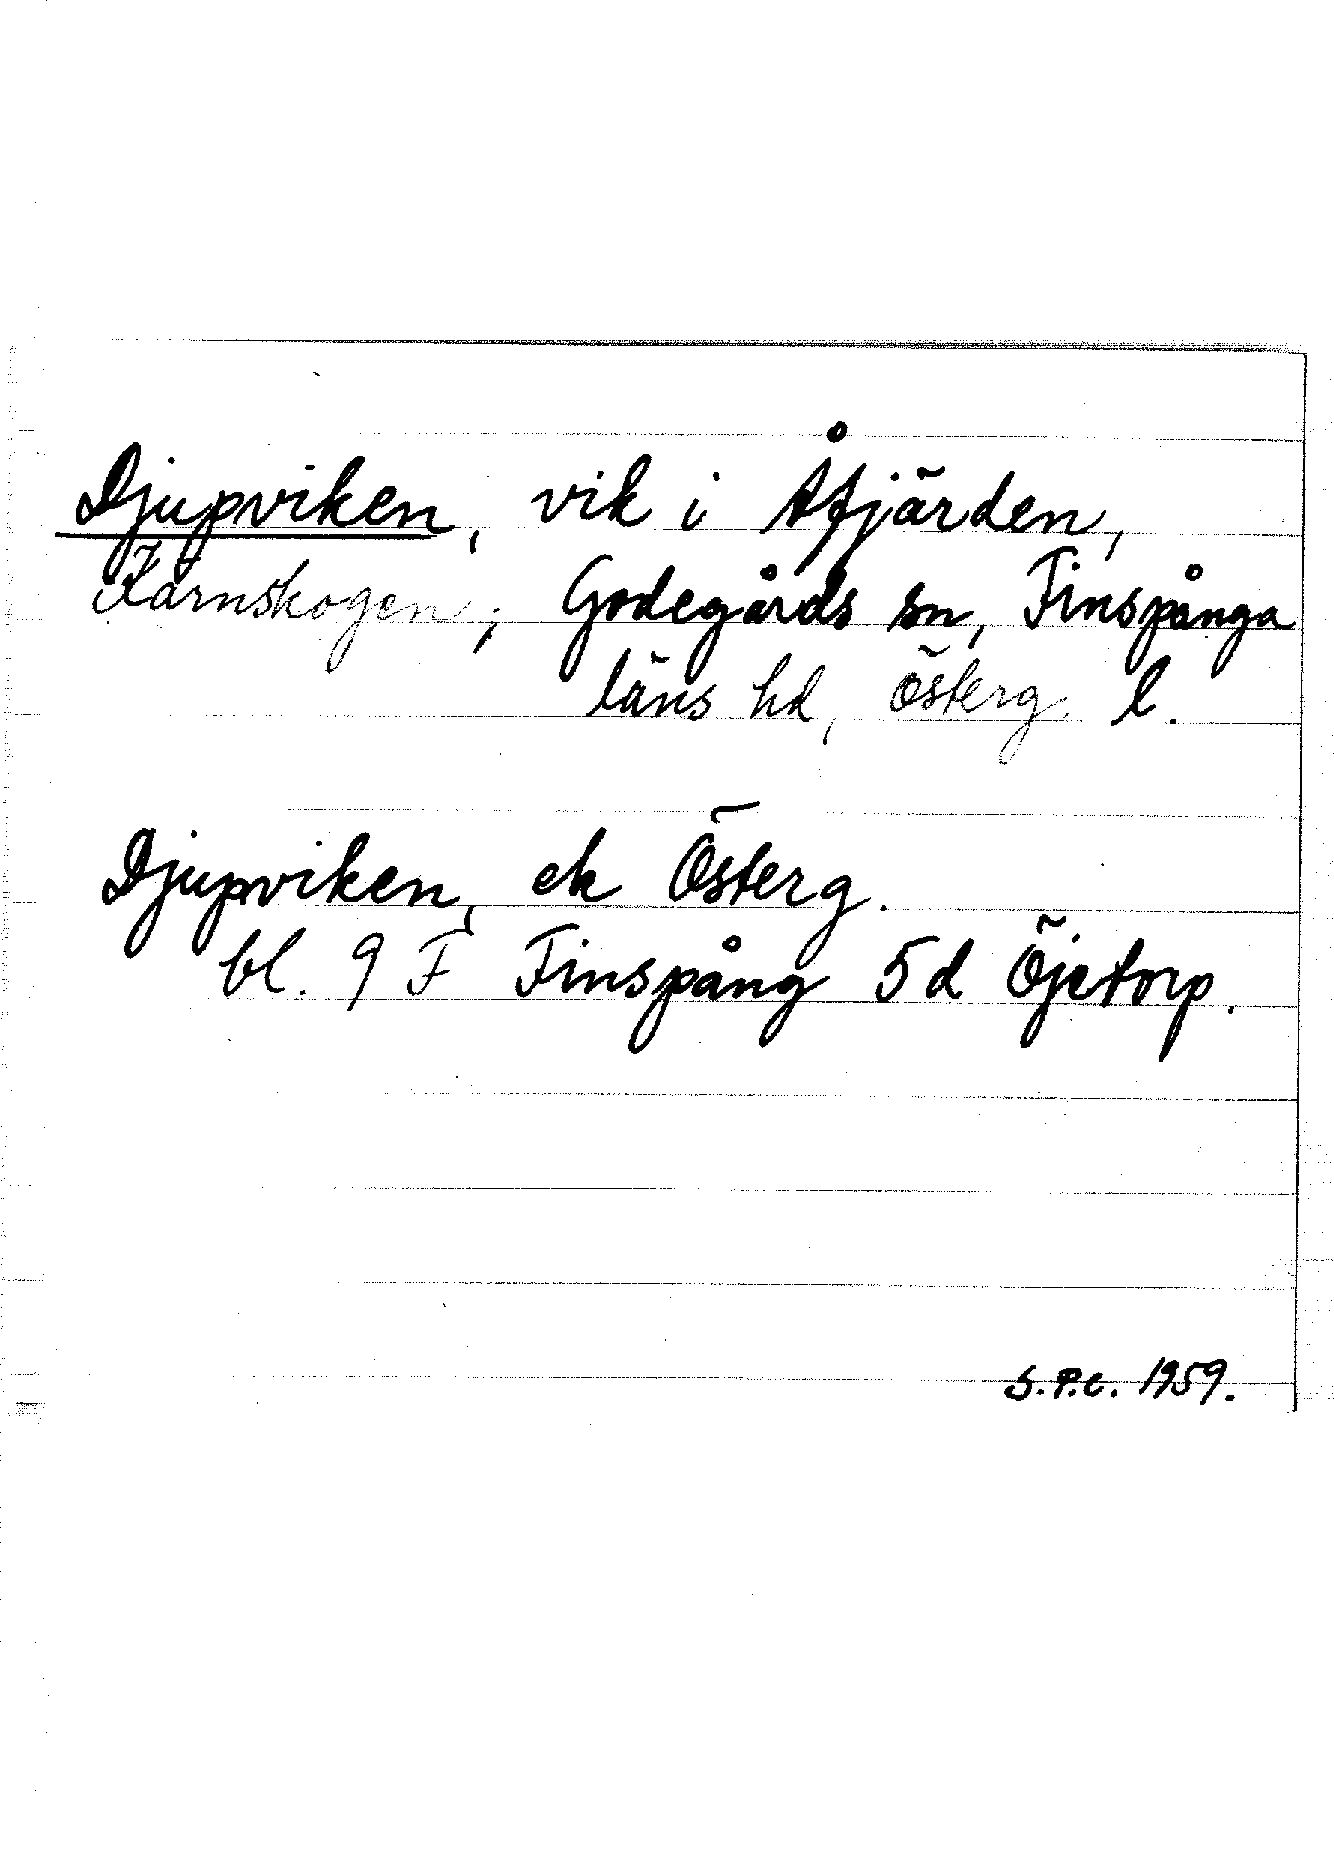 Djupviken, vik i Åfjärden,
Kärnskogen, Godegårds sn, Finspånga
läns hd, Österg. l.
Djupviken, ek Österg.
bl. 9 F Finspång 5d Öjetorp.
S.P.C. 1959.